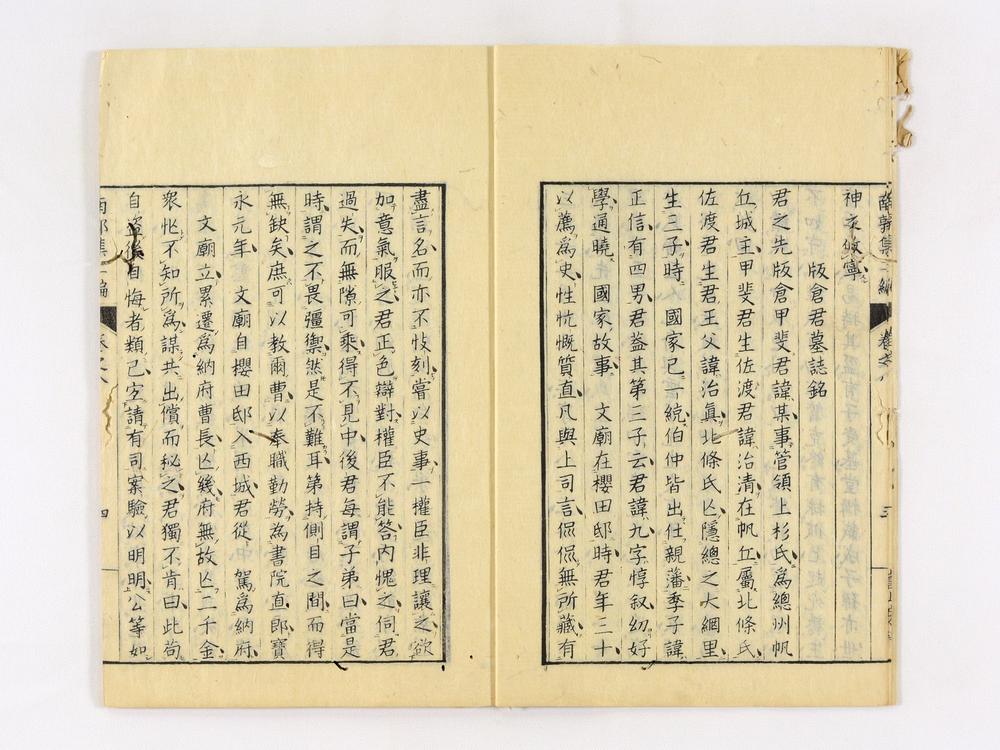 神交倣寧
版倉君墓誌銘
君之先版倉甲斐君諱某事管領上杉氏為總州帆
丘城主甲斐君生佐渡君諱治清在帆丘屬北條氏
佐渡君生君王父諱治真北條氏亾隱總之大網里
生三子時國家已一統伯仲皆出仕親藩季子諱
正信有四男君蓋其第三子云君諱九字惇叙幼好
學通曉國家故事文廟在櫻田邸時君年三十
以薦為史性忼慨質直凡與上司言侃侃無所藏有
盡言名而亦不忮刻嘗以史事一權臣非理讓之欲
加意氣服之君正色辯對權臣不能答內愧之伺君
過失而無隙可乘得不見中後君每謂子弟曰當是
時謂之不畏彊禦然是不難耳第持側目之間而得
無缺矣庶可以教爾曹以奉職勤勞為書院直郎寶
永元年文廟自櫻田邸入西城君從駕為納府
文廟立累遷為納府曹長亾幾府無故亾二千金
衆怭不知所為謀共出償而秘之君獨不肯曰此苟
自盜後自悔者類已空請有司案驗以明明公等如
四